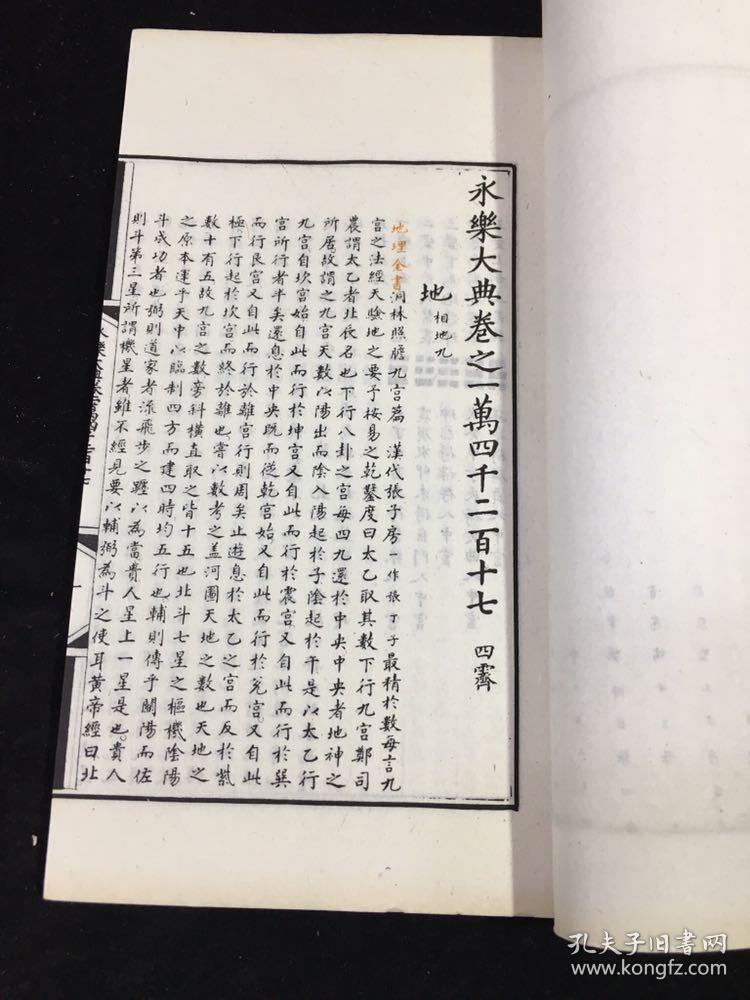 永樂大典卷之一萬四千二百十七 四霽
地 相地九
地理全書洞林照膽九宮篇 漢代張子房一作張丁子最精於數每言九
宮之法經天驗地之要予桉易之乾鑿度曰太乙取其數下行九宮鄭司
農謂太乙者北辰名也下行八卦之宮每四九還於中央中央者地神之
所居故謂之九宮天數以陽出而陰入陽起於子陰起於午是以太乙行
九宮自坎宮始自此而行於坤宮又自此而行於震宮又自此而行於巽
宮所行者半矣還息於中央既而從乾宮始又自此而行於兌宮又自此
而行艮宮又自此而行於離宮行則周矣止遊息於太乙之宮而反於紫
極下行起於坎宮而終於離也嘗以數考之盖河圖天地之數也天地之
數十有五故九宮之數旁斜橫直取之皆十五也北斗七星之樞機陰陽
之原本運乎天中以臨制四方而建四時均五行也輔則傳乎闓陽而佐
斗成功者也弼則道家者流飛步之躔以為當貴人星上一星是也貴人
則斗第三星所謂機星者雖不經見要以輔弼為斗之使耳黄帝經曰北
孔夫子旧书网
www.kongfz.com